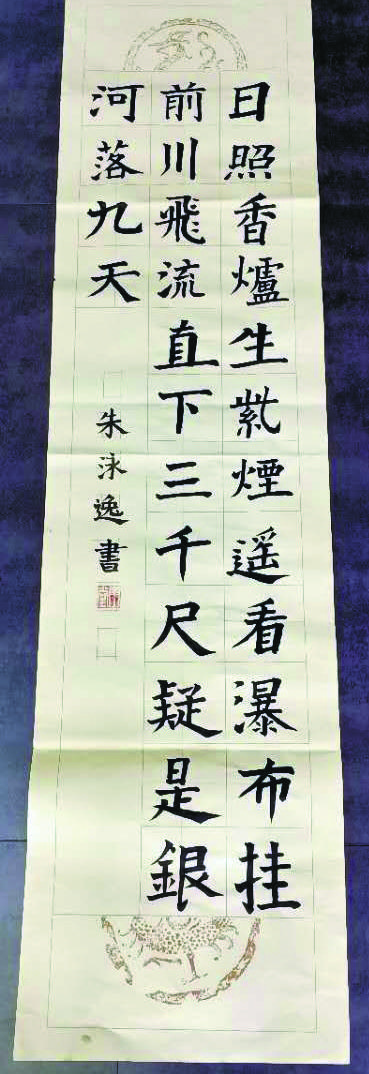 日照香爐生紫煙遥看瀑布挂
前川飛流直下三千尺疑是銀
河落九天
朱泳逸書